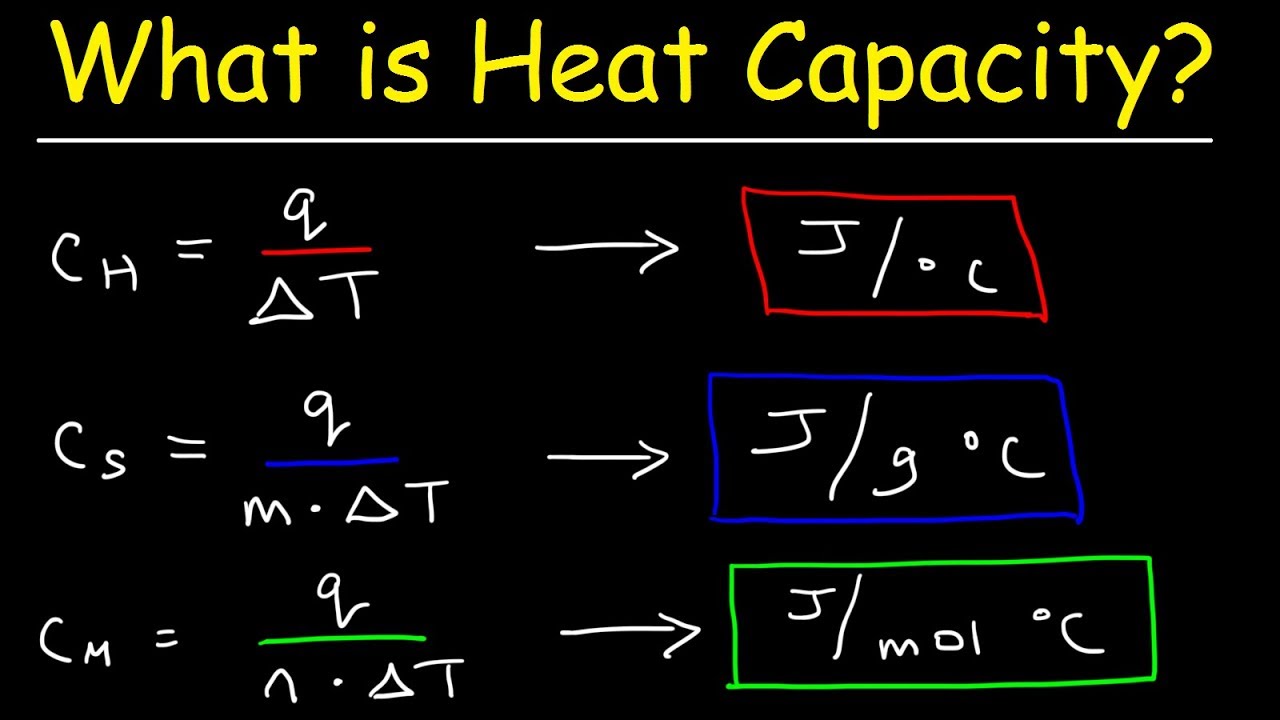 What is Heat Capacity?
C_H = q / ΔT → J/°C
C_S = q / m · ΔT → J/g °C
C_M = q / n · ΔT → J/mol °C